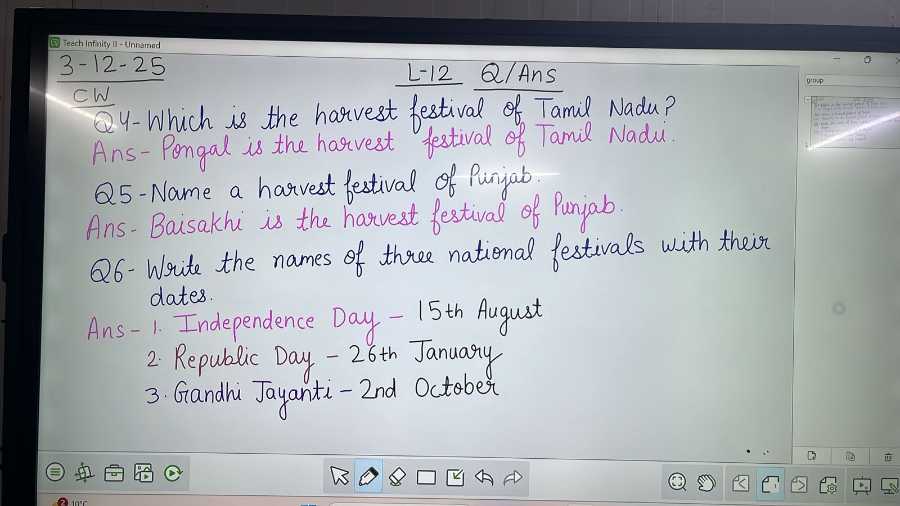 Teach Infinity II - Unnamed
3-12-25
L-12 Q/Ans
CW
group
Q4-Which is the harvest festival of Tamil Nadu?
Ans- Pongal is the harvest festival of Tamil Nadu.
Q5-Name a harvest festival of Punjab.
Ans- Baisakhi is the harvest festival of Punjab.
Q6- Write the names of three national festivals with their
dates.
Ans- 1. Independence Day - 15th August
2. Republic Day - 26th January
3. Gandhi Jayanti - 2nd October
10°C